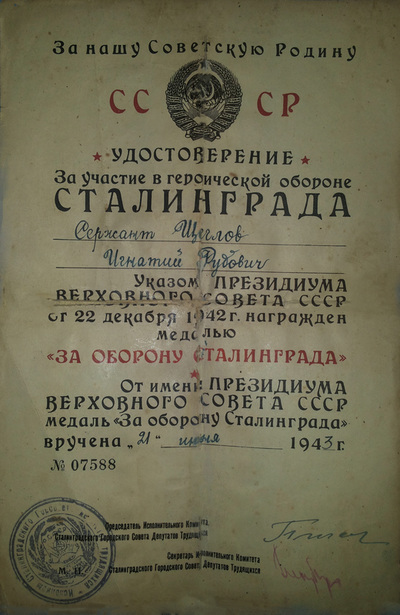 За нашу Советскую Родину
СССР
УДОСТОВЕРЕНИЕ
За участие в героической обороне
СТАЛИНГРАДА
Сержант Щеглов
Игнатий
Указом ПРЕЗИДИУМА
ВЕРХОВНОГО СОВЕТА СССР
от 22 декабря 1942 г. награжден
медалью
«ЗА ОБОРОНУ СТАЛИНГРАДА»
От имени ПРЕЗИДИУМА
ВЕРХОВНОГО СОВЕТА СССР
медаль «За оборону Сталинграда»
вручена „21" июня 1943 г.
№ 07588
Председатель Исполнительного Комитета,
Сталинградского Городского Совета Депутатов Трудящихся
Секретарь Исполнительного Комитета
Сталинградского Городского Совета Депутатов Трудящихся
М. П.